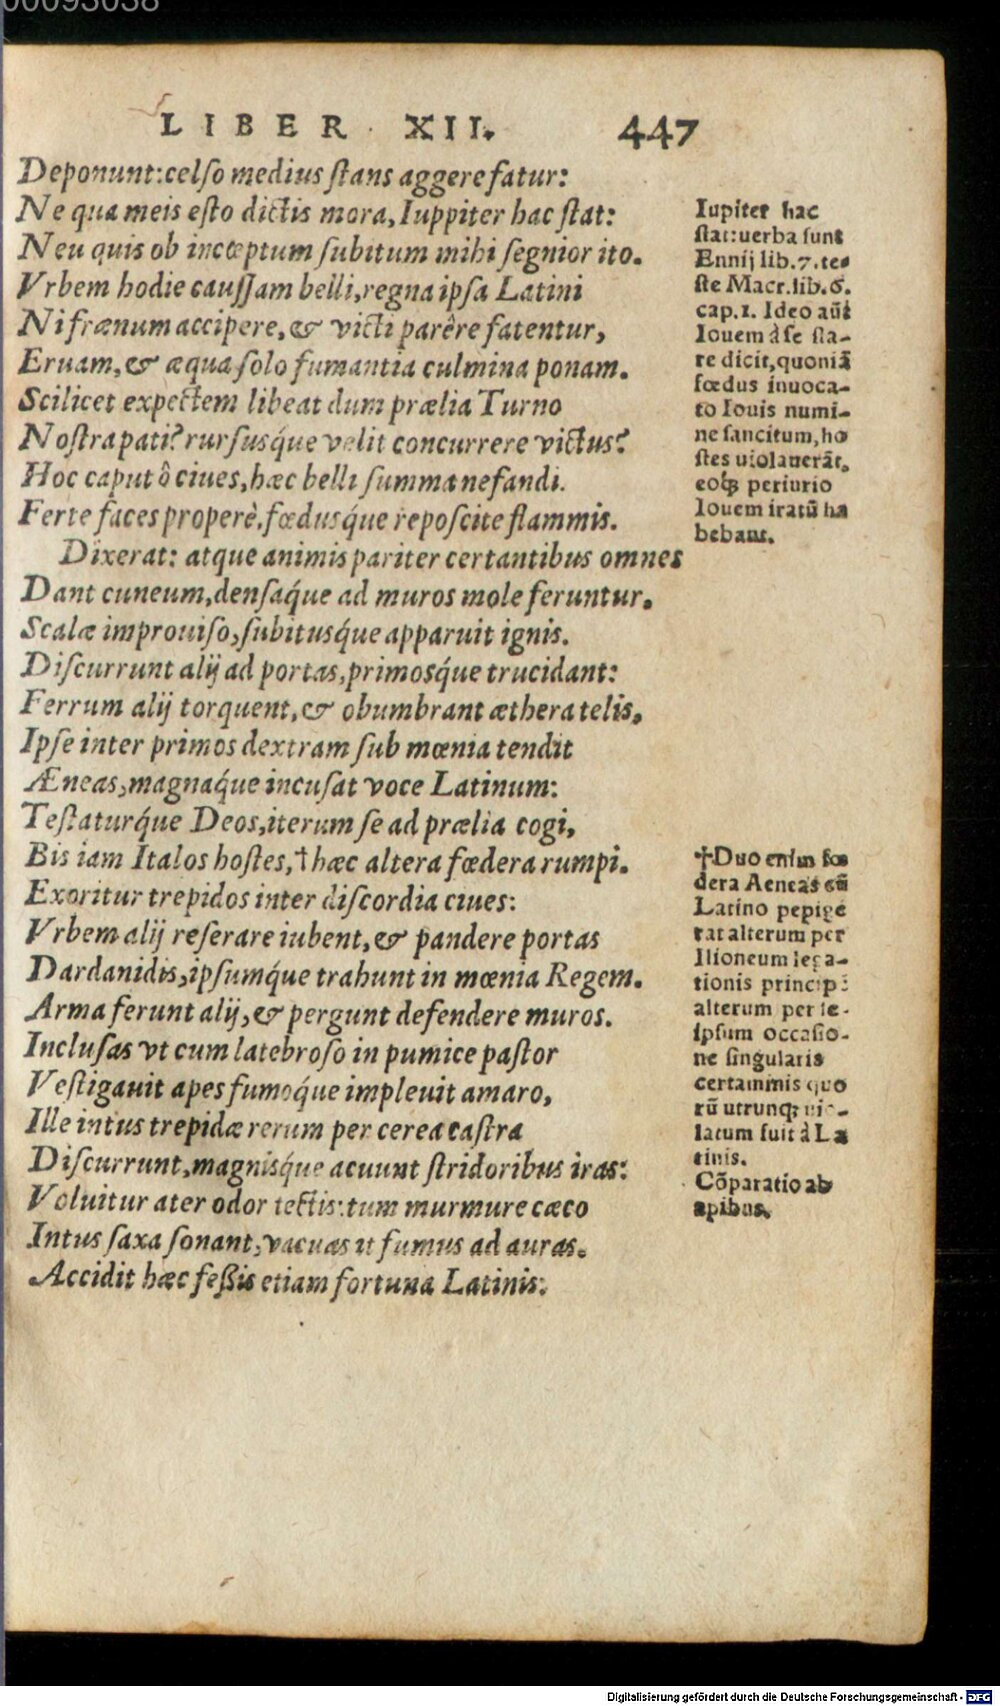 00093038
LIBER XII. 447
Deponunt: celſo medius ſtans aggere fatur:
Ne qua meis eſto dictis mora, Iuppiter hac ſtat:
Neu quis ob incœptum ſubitum mihi ſegnior ito.
Vrbem hodie cauſſam belli, regna ipſa Latini
Ni frænum accipere, & victi parêre fatentur,
Eruam, & æqua ſolo fumantia culmina ponam.
Scilicet expectem libeat dum prælia Turno
Noſtra pati? rurſusq́ue velit concurrere victus?
Hoc caput ô ciues, hæc belli ſumma nefandi.
Ferte faces properè, fœdusq́ue repoſcite flammis.
Dixerat: atque animis pariter certantibus omnes
Dant cuneum, denſaq́ue ad muros mole feruntur.
Scalæ improuiſo, ſubitusq́ue apparuit ignis.
Diſcurrunt alij ad portas, primosq́ue trucidant:
Ferrum alij torquent, & obumbrant æthera telis.
Ipſe inter primos dextram ſub mœnia tendit
Æneas, magnaq́ue incuſat voce Latinum:
Teſtaturq́ue Deos, iterum ſe ad prælia cogi,
Bis iam Italos hoſtes, † hæc altera fœdera rumpi.
Exoritur trepidos inter diſcordia ciues:
Vrbem alij reſerare iubent, & pandere portas
Dardanidis, ipſumq́ue trahunt in mœnia Regem.
Arma ferunt alij, & pergunt defendere muros.
Incluſas vt cum latebroſo in pumice paſtor
Veſtigauit apes fumoq́ue impleuit amaro,
Ille intus trepidæ rerum per cerea caſtra
Diſcurrunt, magnisq́ue acuunt ſtridoribus iras:
Voluitur ater odor tectis: tum murmure cæco
Intus ſaxa ſonant, vacuas it fumus ad auras.
Accidit hæc feßis etiam fortuna Latinis:
Iupiter hac
ſtat: uerba ſunt
Ennij lib. 7. te-
ſte Macr. lib. 6.
cap. 1. Ideo aūt
Iouem à ſe ſta-
re dicit, quoniā
fœdus inuoca-
to Iouis numi-
ne ſancitum, ho
ſtes uiolauerāt,
eoq́; periurio
Iouem iratū ha
bebant.
†Duo enim fœ
dera Aeneas cū
Latino pepige
rat alterum per
Ilioneum lega-
tionis principē
alterum per ſe-
ipſum occaſio-
ne ſingularis
certaminis quo
rū utrunq; uio-
latum fuit à La
tinis.
Cōparatio ab
apibus.
Digitalisierung gefördert durch die Deutsche Forschungsgemeinschaft - DFG